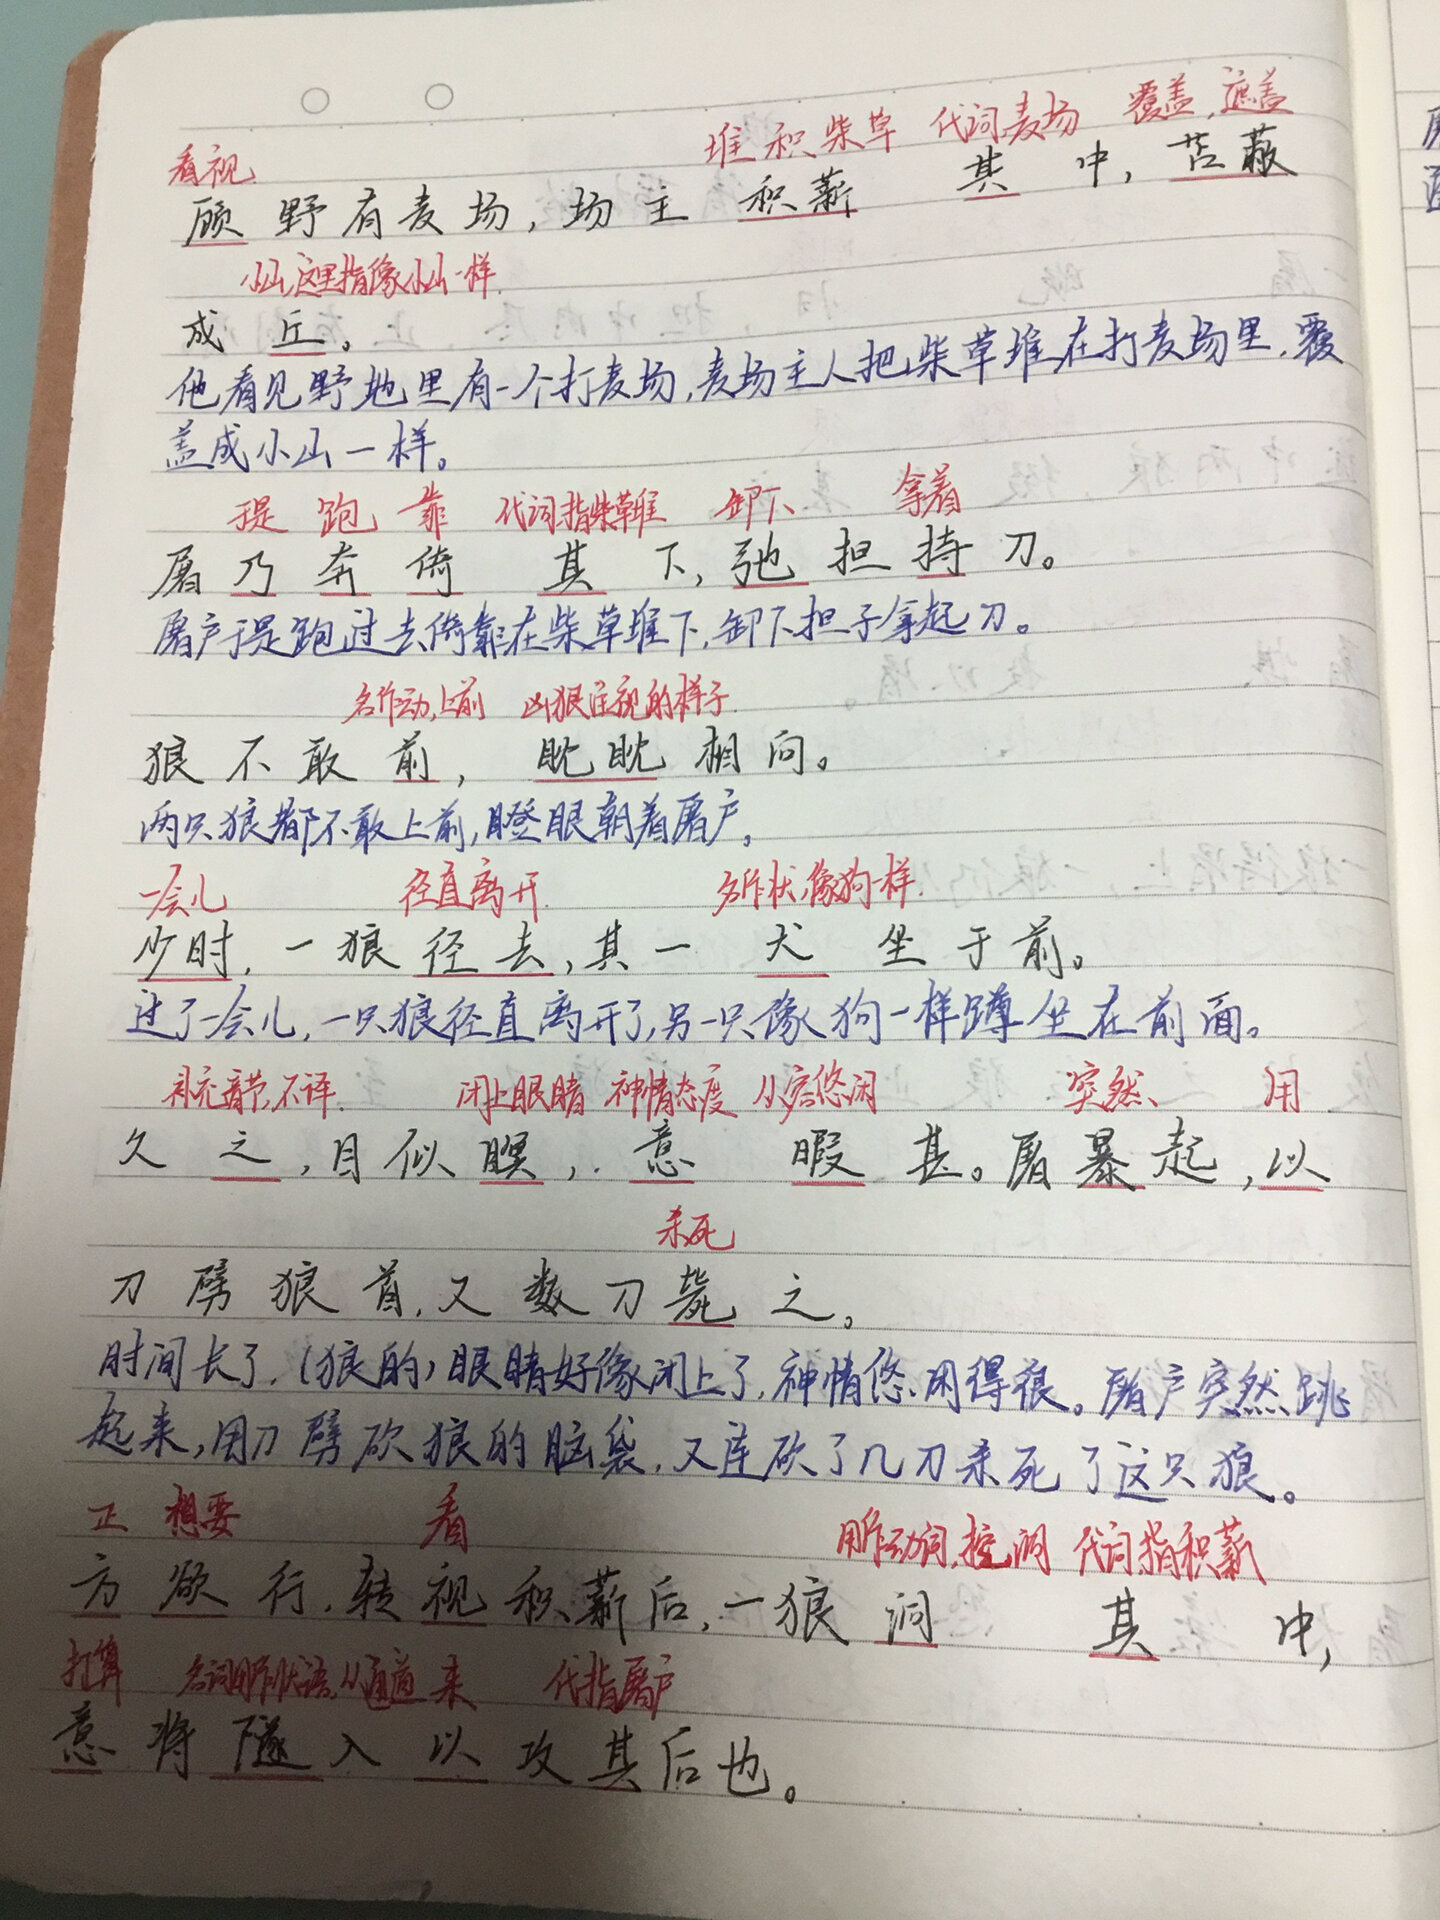 看视 堆积柴草 代词麦场 覆盖,遮盖
顾野有麦场,场主积薪其中,苫蔽
小山,这里指像小山一样.
成丘。
他看见野地里有一个打麦场,麦场主人把柴草堆在打麦场里,覆
盖成小山一样。
于是 跑 靠 代词指柴草堆 卸下 拿着
屠乃奔倚其下,弛担持刀。
屠户于是跑过去倚靠在柴草堆下,卸下担子拿起刀。
名作动,上前 凶狠注视的样子.
狼不敢前,眈眈相向。
两只狼都不敢上前,瞪眼朝着屠户。
一会儿 径直离开. 名作状,像狗一样.
少时,一狼径去,其一犬坐于前。
过了一会儿,一只狼径直离开了,另一只像狗一样蹲坐在前面。
补充音节,不译. 闭上眼睛 神情态度 从容悠闲 突然、 用
久之,目似瞑,意暇甚。屠暴起,以
杀死
刀劈狼首,又数刀毙之。
时间长了,(狼的)眼睛好像闭上了,神情悠闲得很。屠户突然跳
起来,用刀劈砍狼的脑袋,又连砍了几刀杀死了这只狼。
正 想要 看 用作动词,挖洞 代词,指积薪
方欲行,转视积薪后,一狼洞其中,
打算 名词用作状语,从通道 来 代指屠户
意将隧入以攻其后也。